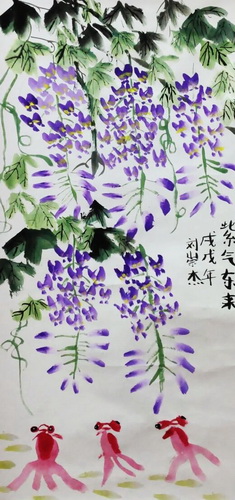 紫气东来
戊戌年
刘崇杰